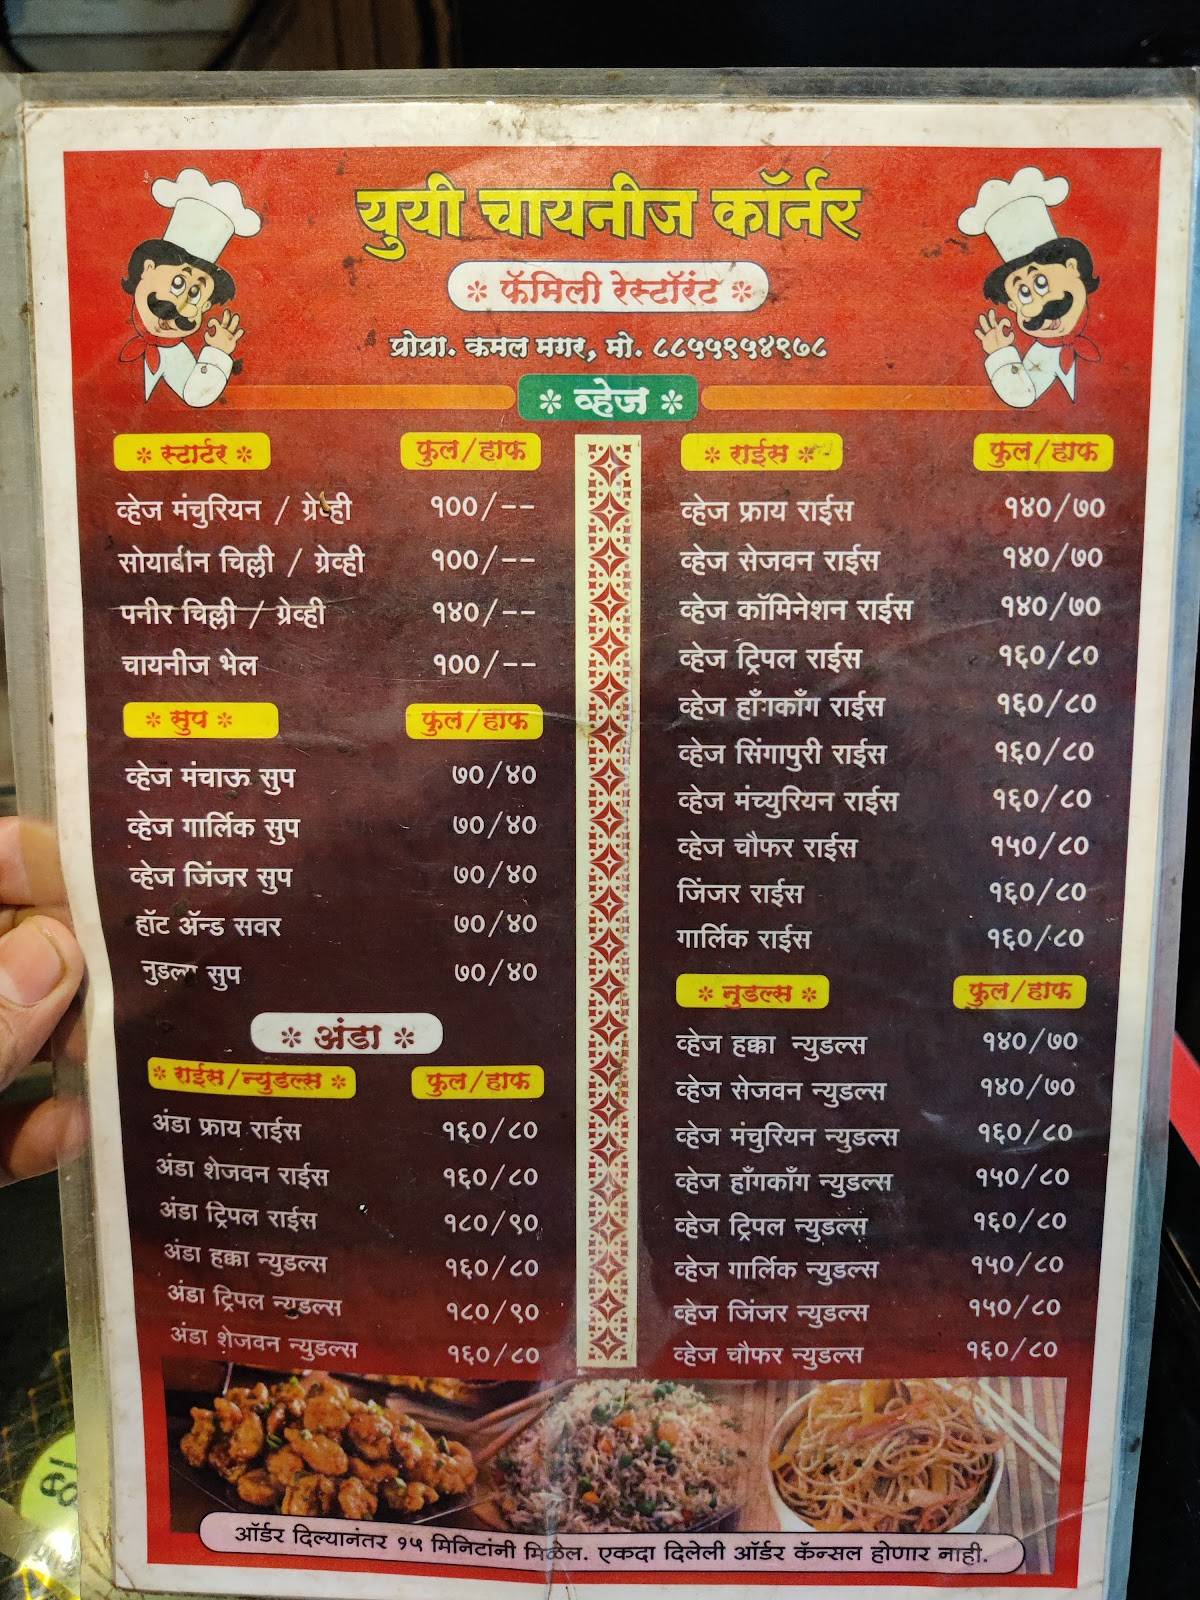 युयी चायनीज कॉर्नर
फॅमिली रेस्टॉरंट
प्रोप्रा. कमल मगर, मो. ८८५५९५४९७८
व्हेज
स्टार्टर फुल/हाफ
व्हेज मंचुरियन / ग्रेव्ही १००/--
सोयाबीन चिल्ली / ग्रेव्ही १००/--
पनीर चिल्ली / ग्रेव्ही १४०/--
चायनीज भेल १००/--
सुप फुल/हाफ
व्हेज मंचाऊ सुप ७०/४०
व्हेज गार्लिक सुप ७०/४०
व्हेज जिंजर सुप ७०/४०
हॉट ॲन्ड सवर ७०/४०
नुडल्स सुप ७०/४०
अंडा
राईस/न्युडल्स फुल/हाफ
अंडा फ्राय राईस १६०/८०
अंडा शेजवन राईस १६०/८०
अंडा ट्रिपल राईस १८०/९०
अंडा हक्का न्युडल्स १६०/८०
अंडा ट्रिपल न्युडल्स १८०/९०
अंडा शेजवन न्युडल्स १६०/८०
राईस फुल/हाफ
व्हेज फ्राय राईस १४०/७०
व्हेज सेजवन राईस १४०/७०
व्हेज कॉमिनेशन राईस १४०/७०
व्हेज ट्रिपल राईस १६०/८०
व्हेज हाँगकाँग राईस १६०/८०
व्हेज सिंगापुरी राईस १६०/८०
व्हेज मंच्युरियन राईस १६०/८०
व्हेज चौफर राईस १५०/८०
जिंजर राईस १६०/८०
गार्लिक राईस १६०/८०
नुडल्स फुल/हाफ
व्हेज हक्का न्युडल्स १४०/७०
व्हेज सेजवन न्युडल्स १४०/७०
व्हेज मंचुरियन न्युडल्स १६०/८०
व्हेज हाँगकाँग न्युडल्स १५०/८०
व्हेज ट्रिपल न्युडल्स १६०/८०
व्हेज गार्लिक न्युडल्स १५०/८०
व्हेज जिंजर न्युडल्स १५०/८०
व्हेज चौफर न्युडल्स १६०/८०
ऑर्डर दिल्यानंतर १५ मिनिटांनी मिळेल. एकदा दिलेली ऑर्डर कॅन्सल होणार नाही.